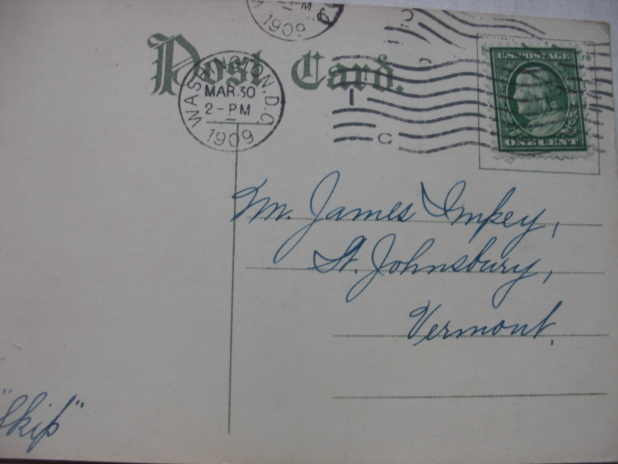 1909
Post Card.
WASHINGTON, D.C.
MAR 30
2-PM
1909
U.S. POSTAGE
ONE CENT
Mr. James Impey,
St. Johnsbury,
Vermont.
"Skip"